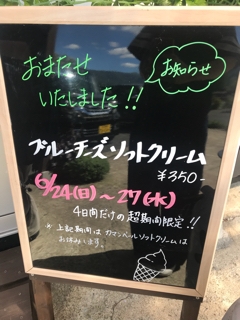 おまたせ
いたしました!!
お知らせ
ブルーチーズソフトクリーム
¥350-
6/24(日)〜27(水)
4日間だけの超期間限定!!
※上記期間はカマンベールソフトクリームは
お休みします。